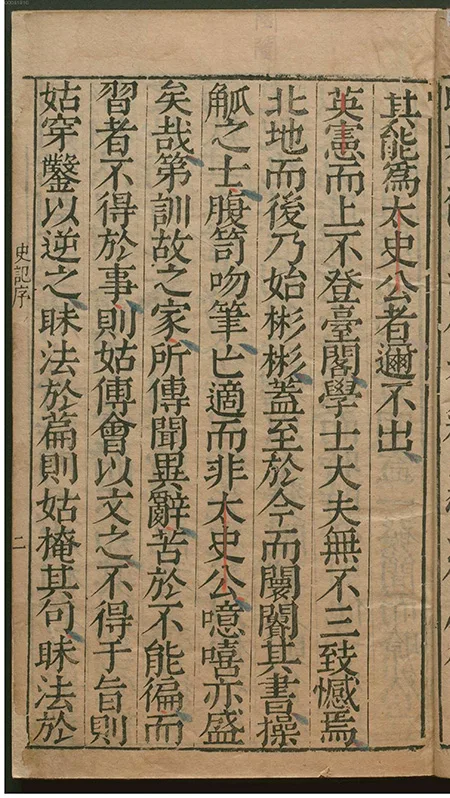 其能爲太史公者邇不出
英憲而上不登臺閣學士大夫無不三致憾焉
北地而後乃始彬彬蓋至於今而闤闠其書操
觚之士腹笥吻筆亡適而非太史公噫嘻亦盛
矣哉第訓故之家所傳聞異辭苦於不能徧而
習者不得於事則姑傅會以文之不得于旨則
姑穿鑿以逆之昧法於篇則姑掩其句昧法於
史記序
二